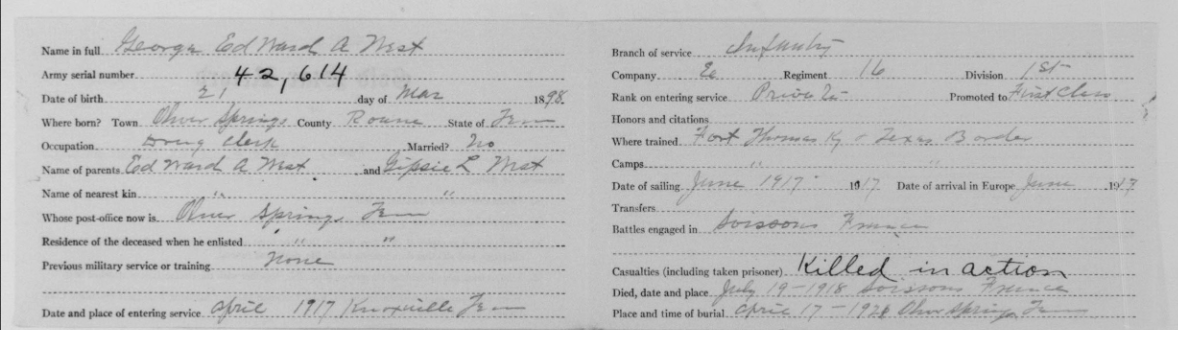 Name in full George Edward A West
Army serial number 42,614
Date of birth 21 day of Mar 1898
Where born? Town Oliver Springs County Roane State of Tenn
Occupation Drug Clerk Married? No
Name of parents Edward A West and Gipsie L West
Name of nearest kin " "
Whose post-office now is Oliver Springs Tenn
Residence of the deceased when he enlisted " "
Previous military service or training none
Date and place of entering service April 1917 Knoxville Tenn
Branch of service Infantry
Company E Regiment 16 Division 1st
Rank on entering service Private Promoted to First Class
Honors and citations
Where trained Fort Thomas Ky & Texas Border
Camps "
Date of sailing June 1917 1917 Date of arrival in Europe June 1917
Transfers
Battles engaged in Soissons France
Casualties (including taken prisoner) Killed in action
Died, date and place July 19-1918 Soissons France
Place and time of burial April 17-1921 Oliver Springs Tenn